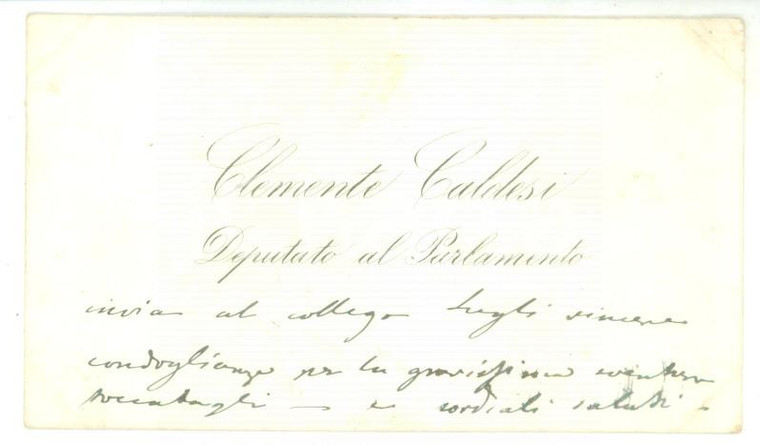 Clemente Caldesi
Deputato al Parlamento
invia al collega Lugli sincere
condoglianze per la gravissima sventura
toccatagli — e cordiali saluti -